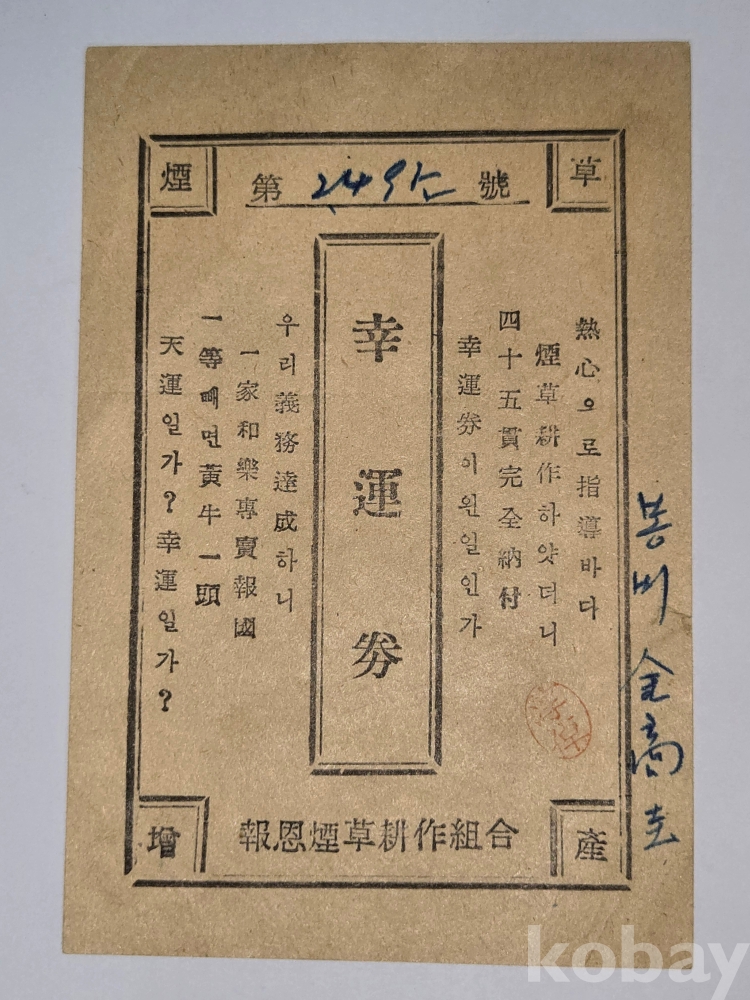 煙 草
第 號
熱心으로指導바다
煙草耕作하얏더니
四十五貫完全納付
幸運券이왼일인가
幸運券
우리義務達成하니
一家和樂專賣報國
一等때면黃牛一頭
天運일가?幸運일가?
增 產
報恩煙草耕作組合
봉비 金商圭
kobay